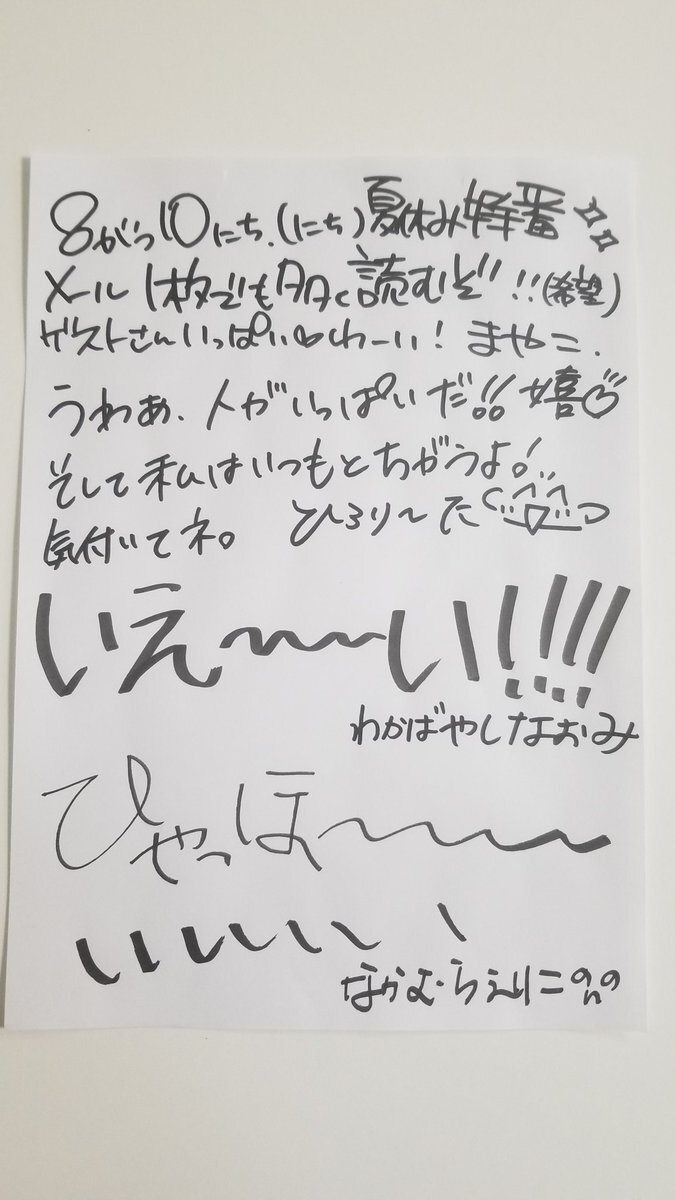 8がつ10にち.(にち)夏休み特番
メール1枚でも多く読むぞ!!(希望)
ゲストさんいっぱい♡わーい! まやこ.
うわぁ、人がいっぱいだ!! 嬉♡
そして私はいつもとちがうよ!
気付いてネ。 ひろりーた
いえ〜〜い!!!!
わかばやしなおみ
ひゃっほ〜〜〜
いいいいい
なかむ・らえりこ